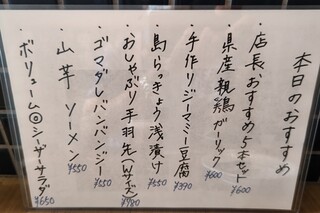 本日のおすすめ
・店長おすすめ5本セット ¥600
・県産親鶏ガーリック ¥600
・手作りジーマミー豆腐 ¥390
・島らっきょう浅漬け ¥550
・おしゃぶり手羽先(Wサイズ) ¥780
・ゴマダレバンバンジー ¥550
・山芋ソーメン ¥550
・ボリューム◎シーザーサラダ ¥650